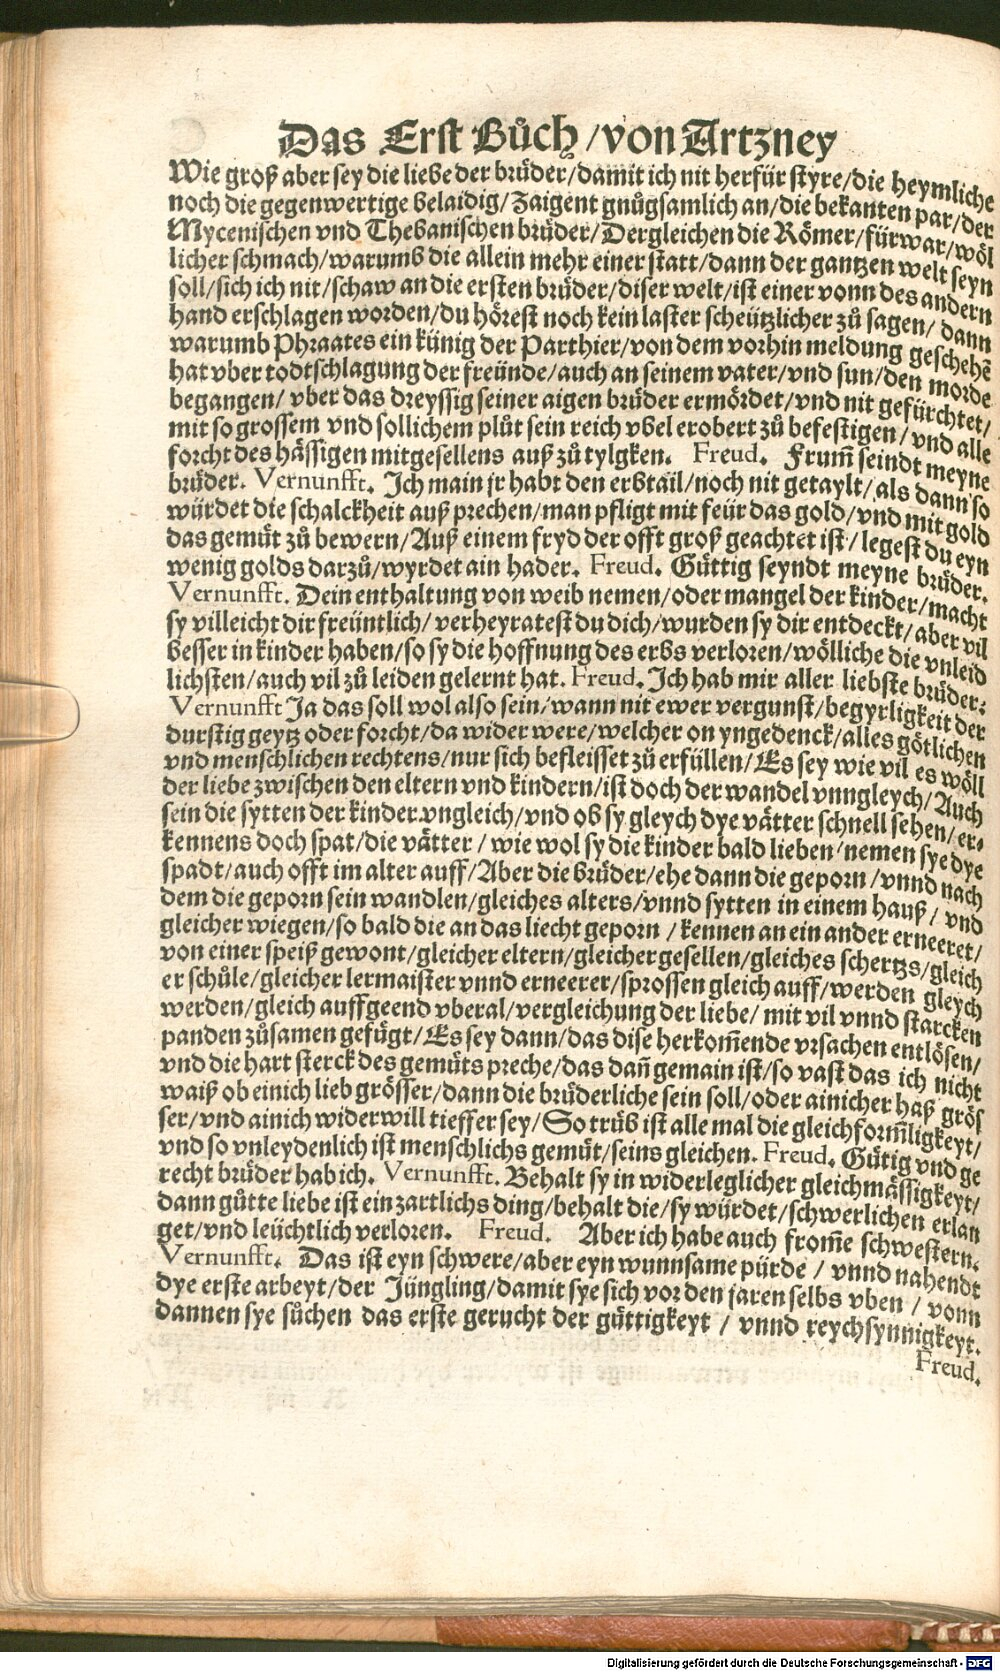 Das Erst Bůch / von Artzney
Wie groß aber sey die liebe der brüder / damit ich nit herfür styre / die heymliche
noch die gegenwertige belaidig / Zaigent gnůgsamlich an / die bekanten par / der
Mycenischen vnd Thebanischen brüder / Dergleichen die Römer / fürwar / wöl
licher schmach / warumb die allein mehr einer statt / dann der gantzen welt seyn
soll / sich ich nit / schaw an die ersten brüder / diser welt / ist einer vonn des andern
hand erschlagen worden / du hörest noch kein laster scheützlicher zů sagen / dann
warumb Phraates ein künig der Parthier / von dem vorhin meldung geschehē
hat vber todtschlagung der freünde / auch an seinem vater / vnd sun / den morde
begangen / vber das dreyssig seiner aigen brüder ermördet / vnd nit gefürchtet /
mit so grossem vnd sollichem plůt sein reich vbel erobert zů befestigen / vnd alle
forcht des hässigen mitgesellens auß zů tylgken. Freud. Frum̄ seindt meyne
brüder. Vernunfft. Ich main jr habt den erbtail / noch nit getaylt / als dann so
würdet die schalckheit auß prechen / man pfligt mit feür das gold / vnd mit gold
das gemüt zů bewern / Auß einem fryd der offt groß geachtet ist / legest du eyn
wenig golds darzů / wyrdet ain hader. Freud. Güttig seyndt meyne brüder.
Vernunfft. Dein enthaltung von weib nemen / oder mangel der kinder / macht
sy villeicht dir freüntlich / verheyratest du dich / wurden sy dir entdeckt / aber vil
besser in kinder haben / so sy die hoffnung des erbs verloren / wölliche die vnleid
lichsten / auch vil zů leiden gelernt hat. Freud. Ich hab mir aller liebste brüder.
Vernunfft Ja das soll wol also sein / wann nit ewer vergunst / begyrligkeit der
durstig geytz oder forcht / da wider were / welcher on yngedenck / alles götlichen
vnd menschlichen rechtens / nur sich befleisset zů erfüllen / Es sey wie vil es wöll
der liebe zwischen den eltern vnd kindern / ist doch der wandel vnngleych / Auch
sein die sytten der kinder vngleich / vnd ob sy gleych dye vätter schnell sehen / er⸗
kennens doch spat / die vätter / wie wol sy die kinder bald lieben / nemen sye dye
spadt / auch offt im alter auff / Aber die brüder / ehe dann die geporn / vnnd nach
dem die geporn sein wandlen / gleiches alters / vnnd sytten in einem hauß / vnd
gleicher wiegen / so bald die an das liecht geporn / kennen an ein ander erneeret /
von einer speiß gewont / gleicher eltern / gleicher gesellen / gleiches schertzs / gleich
er schůle / gleicher lermaister vnnd erneerer / sprossen gleich auff / werden gleych
werden / gleich auffgeend vberal / vergleichung der liebe / mit vil vnnd starcken
panden zůsamen gefügt / Es sey dann / das dise herkom̄ende vrsachen entlösen /
vnd die hart sterck des gemüts preche / das dan̄ gemain ist / so vast das ich nicht
waiß ob einich lieb grösser / dann die brüderliche sein soll / oder ainicher haß grös
ser / vnd ainich widerwill tieffer sey / So trüb ist alle mal die gleichform̄ligkeyt /
vnd so vnleydenlich ist menschlichs gemüt / seins gleichen. Freud. Gütig vnd ge
recht brüder hab ich. Vernunfft. Behalt sy in widerleglicher gleichmässigkeyt /
dann gůtte liebe ist ein zartlichs ding / behalt die / sy würdet / schwerlichen erlan
get / vnd leüchtlich verloren. Freud. Aber ich habe auch from̄e schwestern.
Vernunfft. Das ist eyn schwere / aber eyn wunnsame pürde / vnnd nahendt
dye erste arbeyt / der Jüngling / damit sye sich vor den jaren selbs vben / vonn
dannen sye sůchen das erste gerucht der güttigkeyt / vnnd reychsynnigkeyt.
Freud.
Digitalisierung gefördert durch die Deutsche Forschungsgemeinschaft - DFG